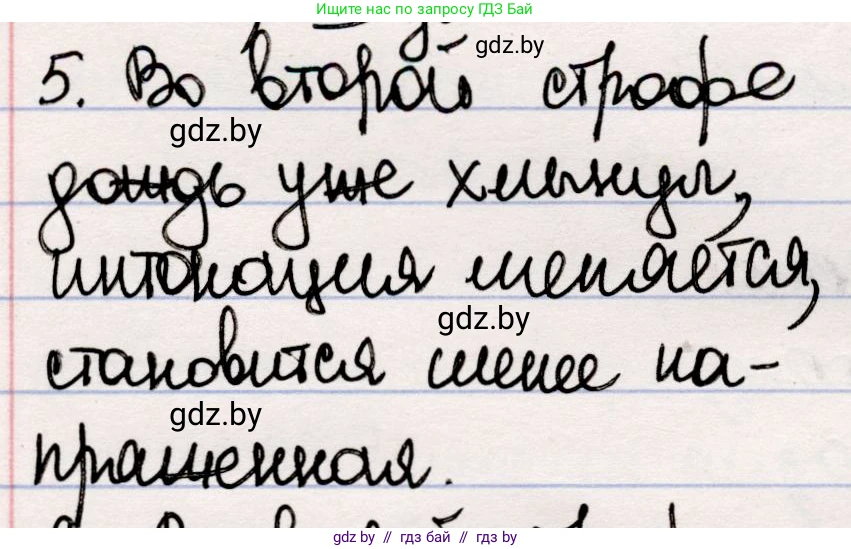 Ищите нас по запросу ГДЗ Бай
5. Во второй строфе
gdz.by
gdz.by
дождь уже хлынул,
интонация меняется,
gdz.by
становится менее на-
gdz.by
пряженная.
gdz.by // гдз бай // гдз by